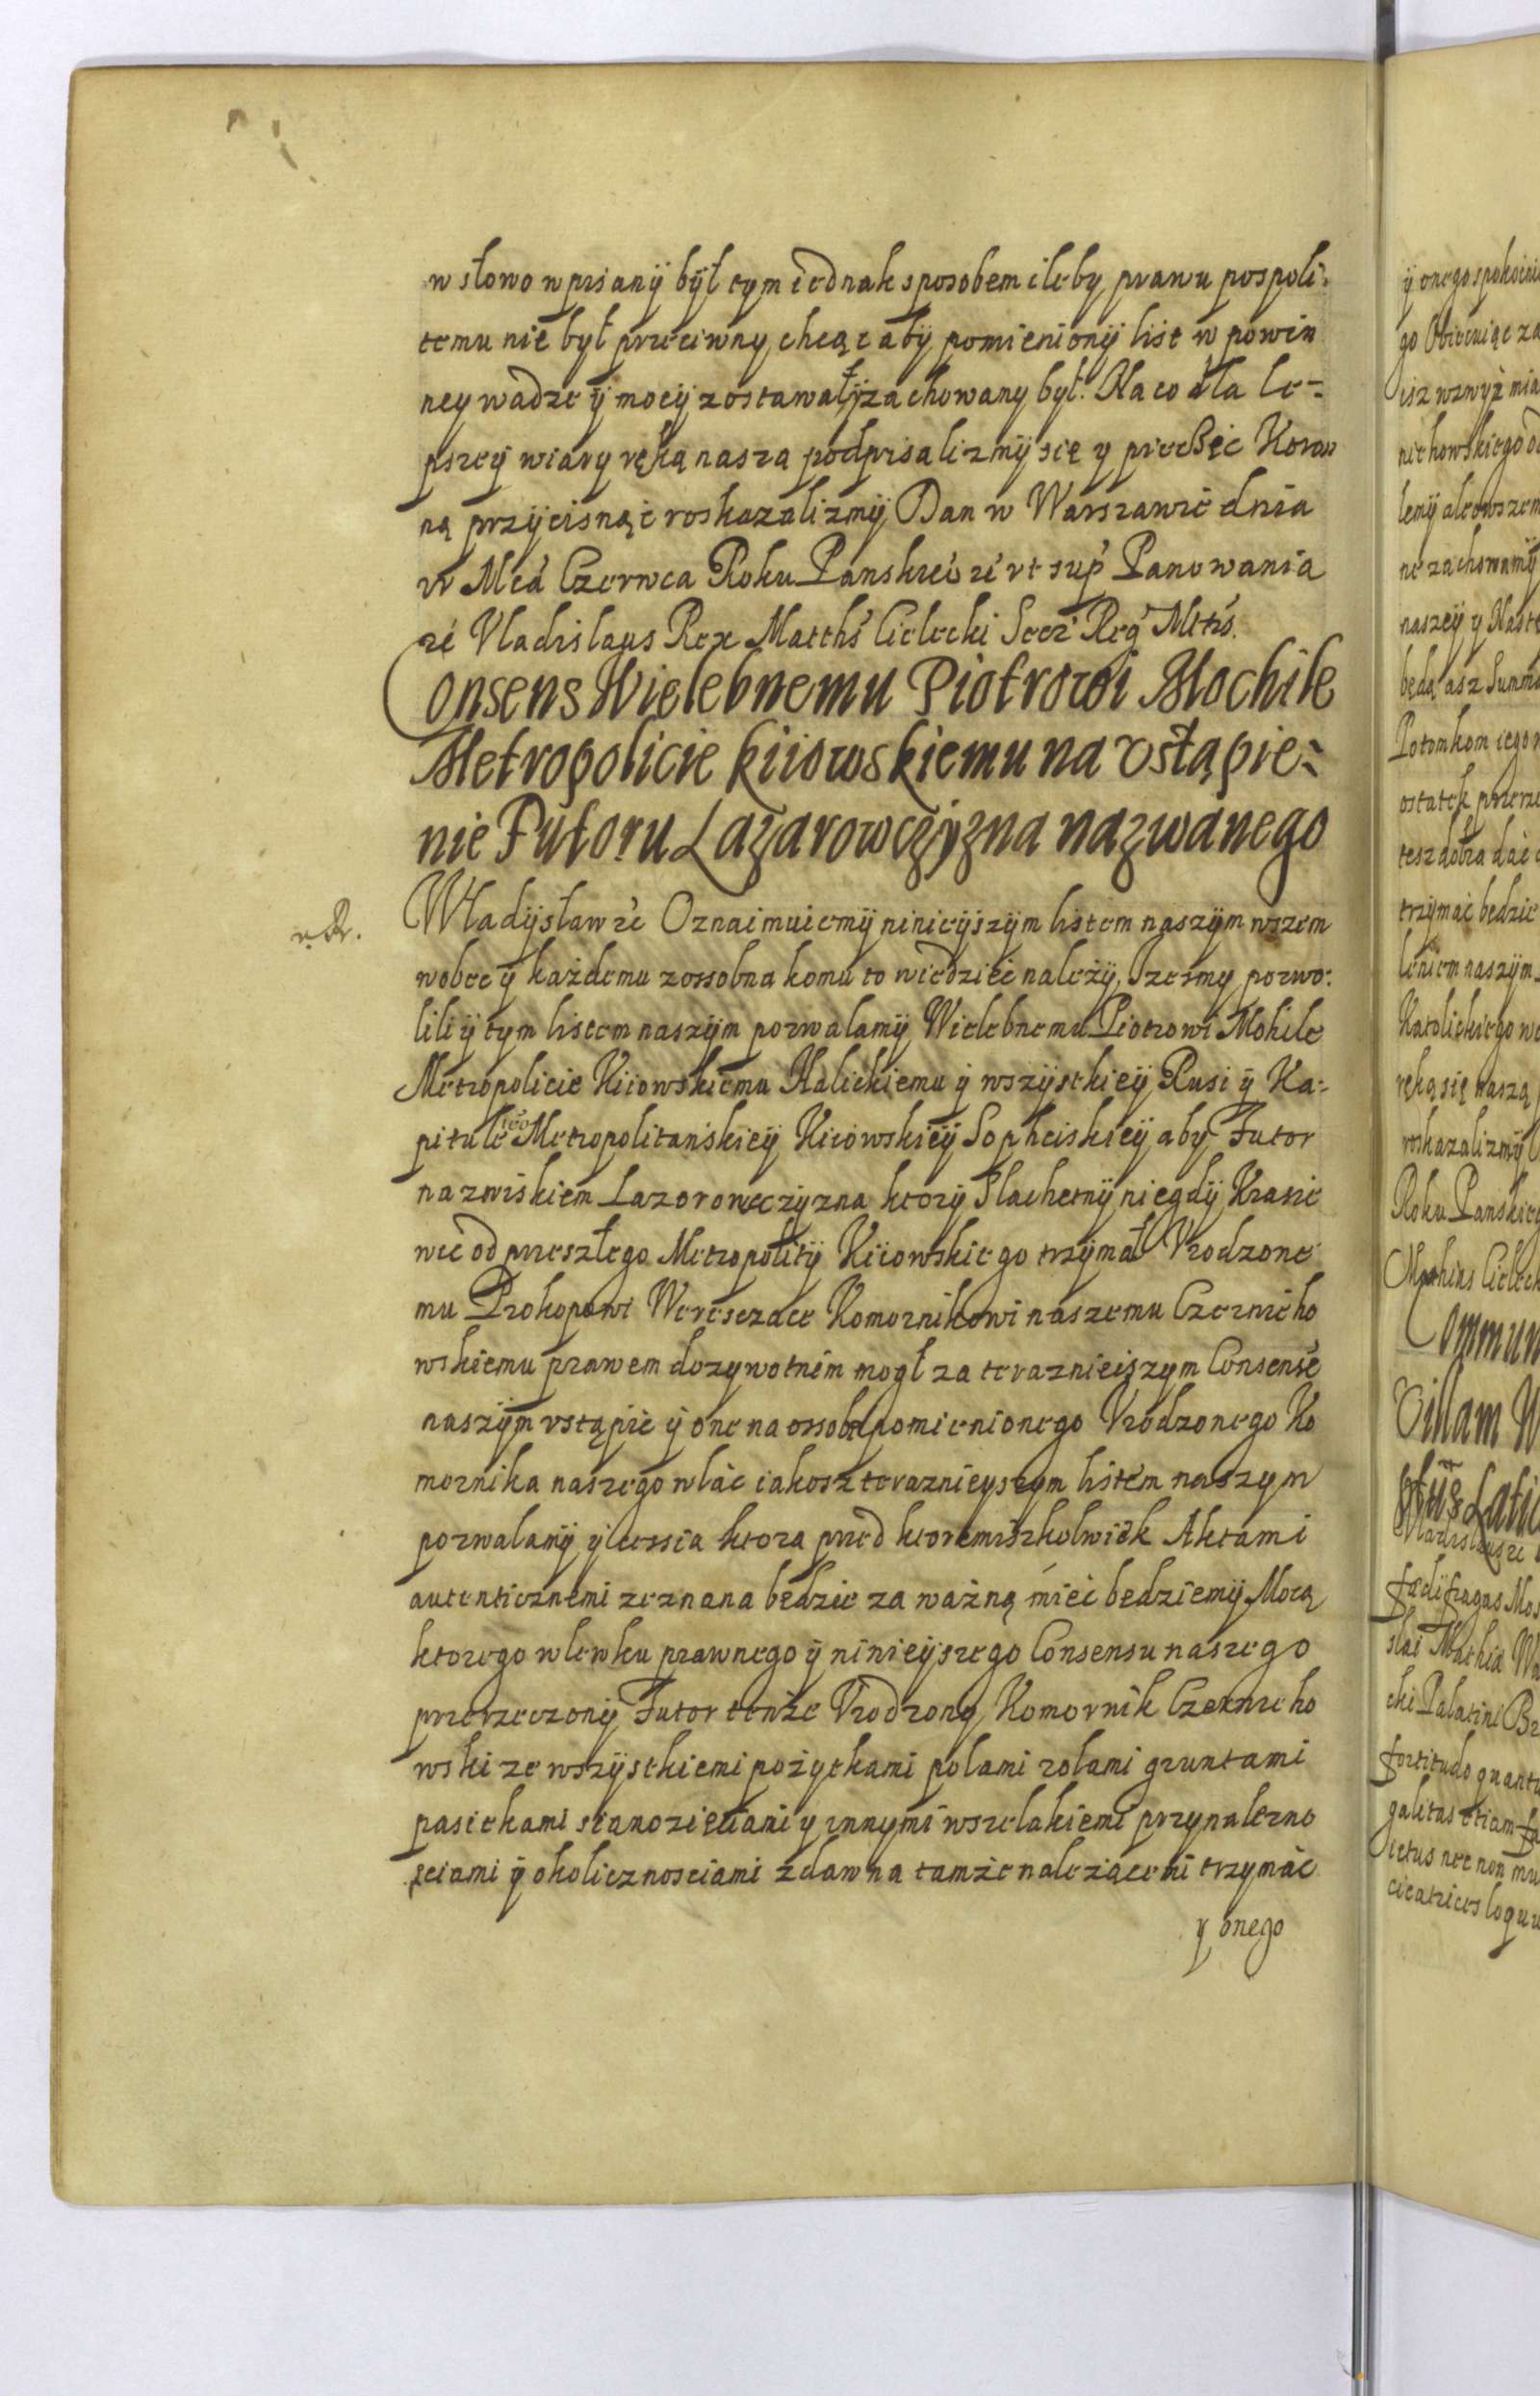 w słowo wpisanÿ bÿł tym iednak sposobem ileby prawu pospoli-
temu nie był przeciwny, chcąc abÿ pomienionÿ list w powin
ney wadze ÿ mocÿ zostawałÿ zachowany był. Na co dla le-
pszeÿ wiary ręką naszą podpisalizmÿ się y pieczęć Koron
ną przÿcisnąć roskazalizmÿ Dan w Warszawie dnia
w Mcá Czerwca Roku Panskieo ze vt sup Panowania
ze Vladislaus Rex Matths Cielecki Secr Reg Mttis.
Consens Wielebnemu Piotrowi Mochile
Metropolicie kiiowskiemu na vstąpie-
nie Futoru Lazarowczÿzna nazwanego
Władÿsław ze Oznaimuiemÿ ninieÿszÿm listem naszÿm wszem
wobec ÿ każdemu zossobna komu to wiedzieć należÿ, Izesmy pozwo-
lili ÿ tym listem naszÿm pozwalamÿ Wielebnemu Piotrowi Mohile
Metropolicie Kiiowskiemu Halickiemu ÿ wszÿstkieÿ Rusi ÿ Ka-
pitule teÿ Metropolitańskieÿ Kiiowskieÿ Sopheiskieÿ aby Futor
nazwiskiem Lazorowczÿzna ktorÿ Slachetnÿ niegdÿ Krasic
wcc od przeszłego Metropolitÿ Kiiowskiego trzÿmał Vrodzone
mu Prokopowi Weresczace Komornikowi naszemu Czernicho
wskiemu prawem dozywotnim mogł za teraznieiszym Consense
naszÿm vstąpić ÿ one na ossobę pomienionego Vrodzonego Ko
mornika naszego wlać iakosz teraznieyszym listem naszym
pozwalamÿ ÿ cessia ktora przed ktoremiszkolwiek Aktami
autenticznemi zeznana będzie za ważną mieć będziemÿ Mocą
ktorego wlewku prawnego ÿ ninieÿszego Consensu naszego
przerzeczonÿ Futor tenże Vrodzony Komornik Czernicho
wski ze wszÿstkiemi pożytkami polami rolami gruntami
pasiekami sianozieciami y innymi wszelakiemi przynalezno
sciami ÿ okolicznosciami zdawna tamże należącemi trzymać
y onego